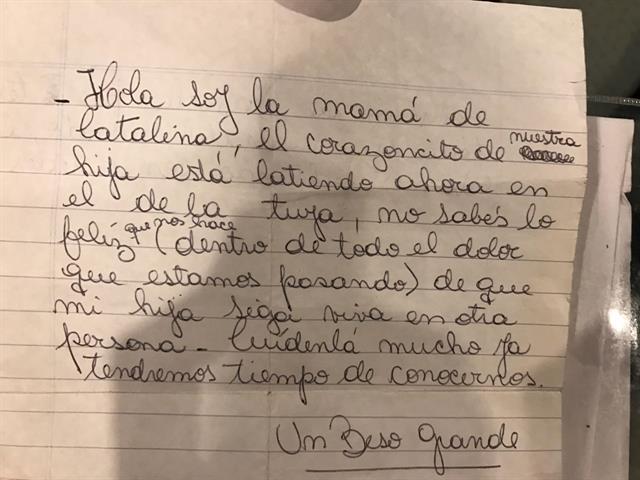 - Hola soy la mamá de
Catalina, el corazoncito de nuestra
hija está latiendo ahora en
el de la tuya, no sabés lo
feliz que nos hace (dentro de todo el dolor
que estamos pasando) de que
mi hija siga viva en otra
persona - Cuídenlá mucho ya
tendremos tiempo de conocernos.
Un Beso Grande